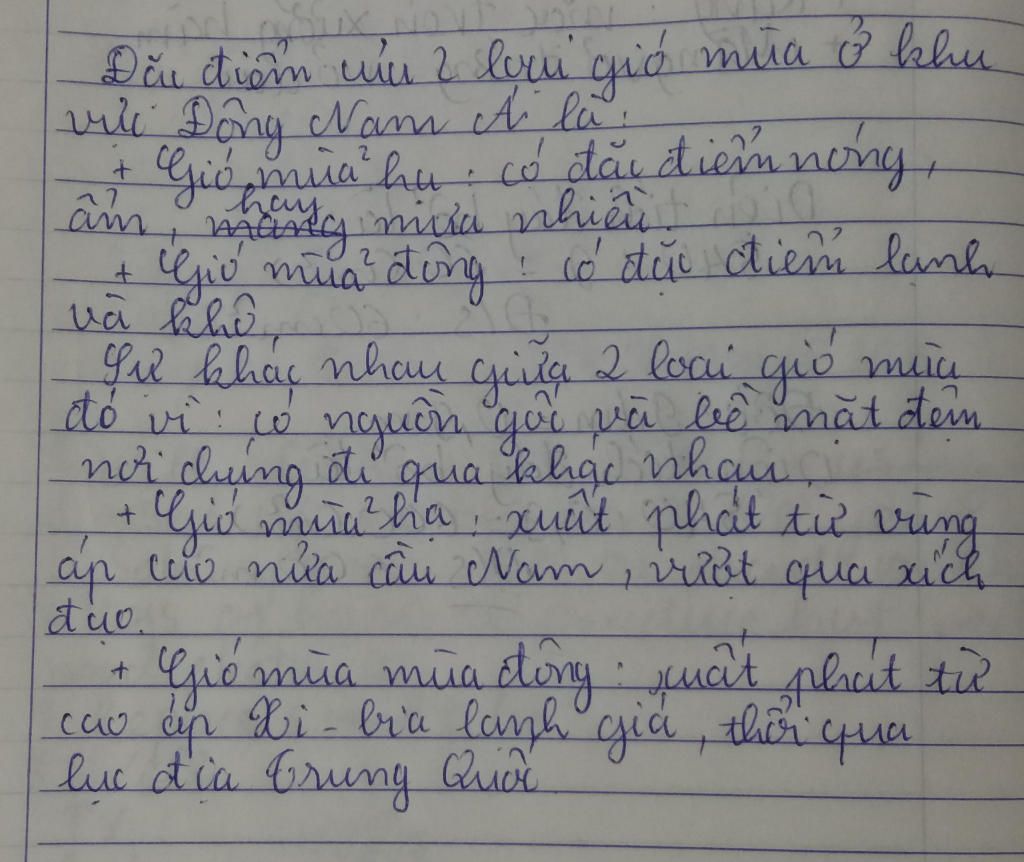 Đặc điểm của 2 loại gió mùa ở khu
vực Đông Nam Á là:
+ Gió mùa² hạ: có đặc điểm nóng,
ẩm, mang hay mưa nhiều.
+ Gió mùa² đông: có đặc điểm lạnh
và khô.
Sự khác nhau giữa 2 loại gió mùa
đó vì: có nguồn gốc và bề mặt đệm
nơi chúng đi qua khác nhau.
+ Gió mùa² hạ: xuất phát từ vùng
áp cao nửa cầu Nam, vượt qua xích
đạo.
+ Gió mùa mùa đông: xuất phát từ
cao áp Xi-bia lạnh giá, thổi qua
lục địa Trung Quốc